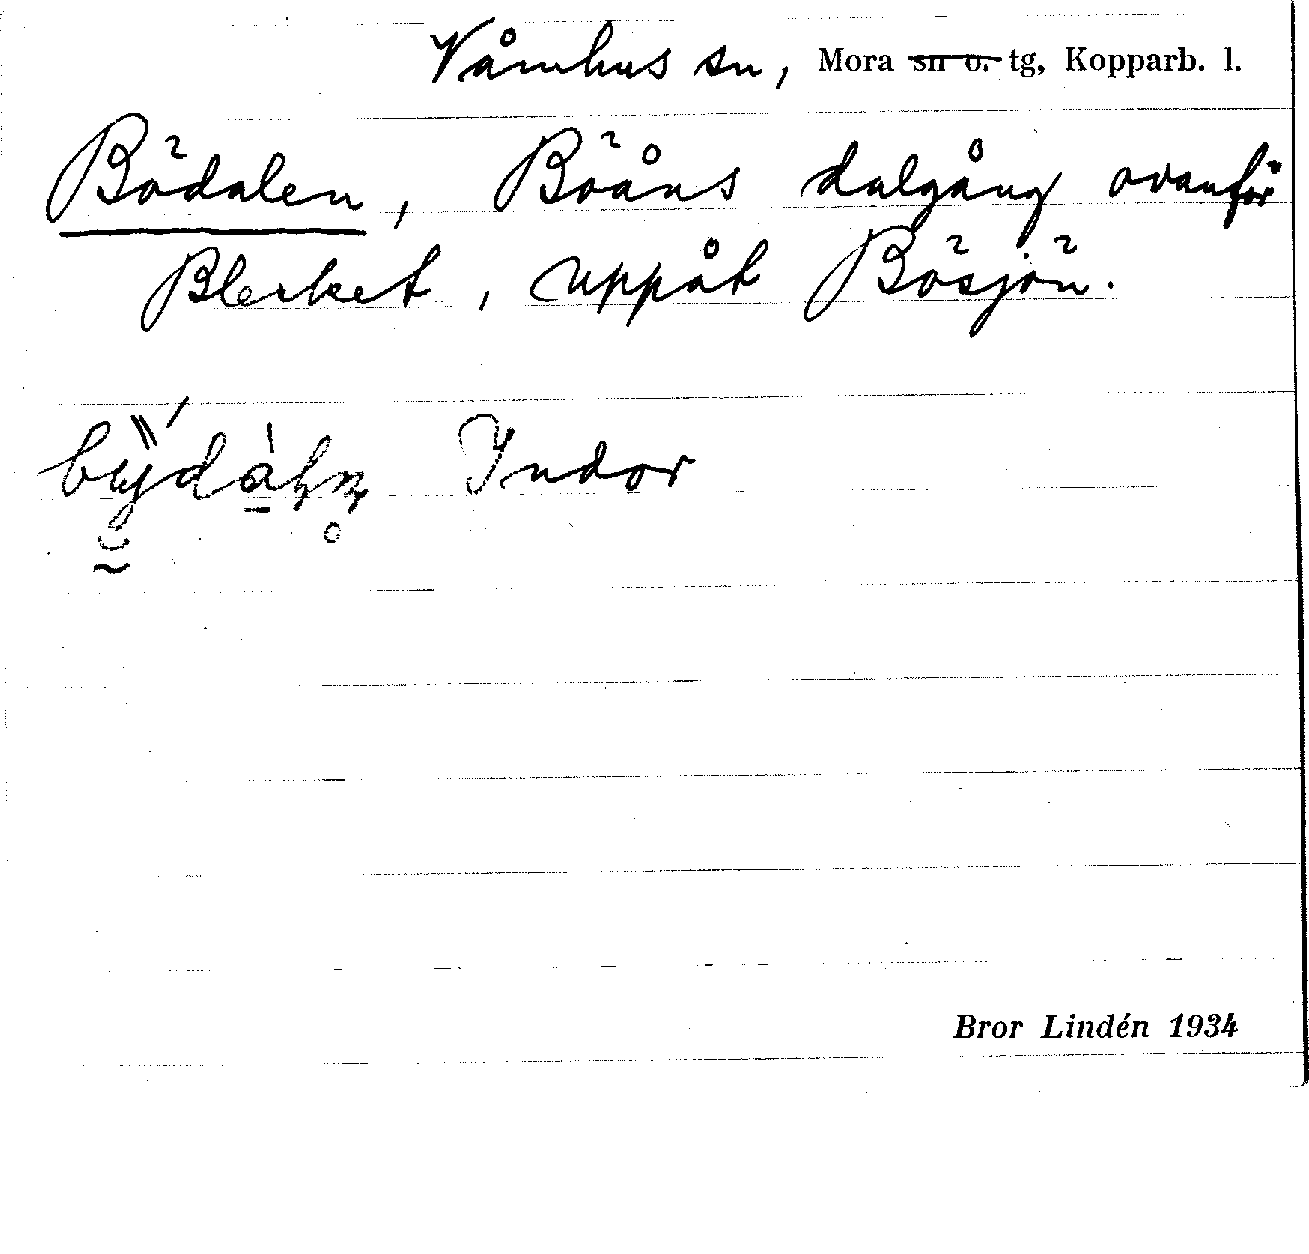 Våmhus sn, Mora sn o. tg, Kopparb. l.
Bödalen, Böåns dalgång ovanför
Blecket, uppåt Bösjön.
Indor
Bror Lindén 1934